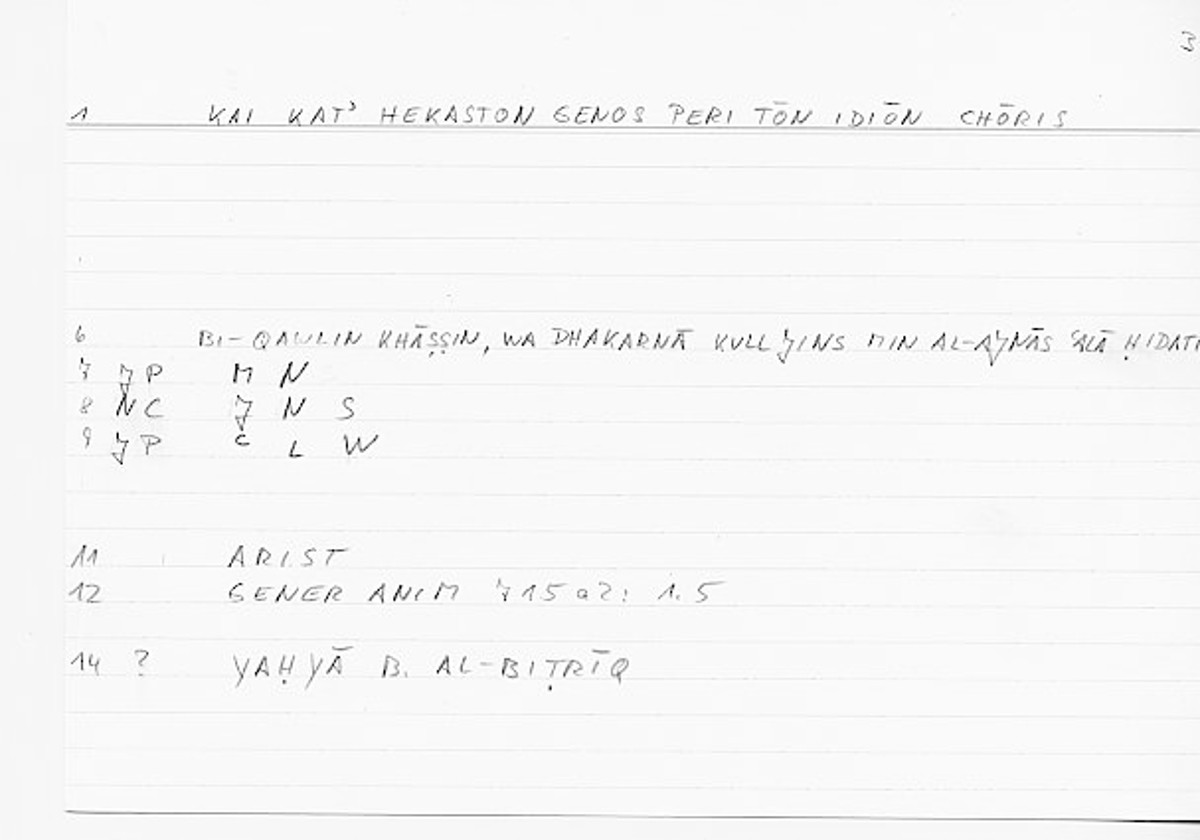 3
1 KAI KAT' HEKASTON GENOS PERI TŌN IDIŌN CHŌRIS
6 BI-QAULIN KHĀṢṢIN, WA DHAKARNĀ KULL JINS MIN AL-AJNĀS ʿALĀ ḤIDATI
7 JP M N
8 NC J N S
9 JP ʿ L W
11 ARIST
12 GENER ANIM 715a2: 1.5
14 ? YAḤYĀ B. AL-BIṬRĪQ